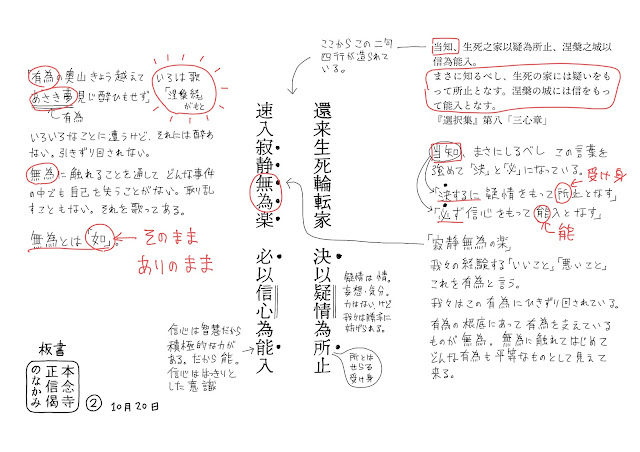 当知、生死之家以疑為所止、涅槃之城以
信為能入。
まさに知るべし、生死の家には疑いをも
って所止となす。涅槃の城には信をもっ
て能入となす。
『選択集』第八「三心章」
ここからこの二句
四行が造られて
いる。
當知、まさにしるべし この言葉を
強めて「決」と「必」になっている。
受け身
「決するに疑情をもって所止となす」
「必ず信心をもって能入となす」
能
「寂静無為の楽」
我々の経験する「いいこと」「悪いこと」
これを有為と言う。
我々はこの有為にひきずり回されている。
有為の根底にあって有為を支えている
ものが無為。無為に触れてはじめて
どんな有為も平等なものとして見えて
来る。
還来生死輪転家
決以疑情為所止
速入寂静無為楽
必以信心為能入
疑情は情。
妄想・気分。
力はないけど
我々は勝手に
妨げられる。
所とは
せらる
受け身
信心は智慧だから
積極的な力が
ある。だから能。
信心ははっきりと
した意識
「有為の奥山きょう越えて
あさき夢見じ酔ひもせず」
有為
いろは歌
「涅槃経」
がもと
いろいろなことに遭うけど、それには酔わ
ない。引きずり回されない。
無為に触れることを通して どんな事件
の中でも自己を失うことがない。取り乱
すこともない。それを歌ってある。
無為とは「如」。
そのまま
ありのまま
板書
本念寺
正信偈
のなかみ
② 10月20日